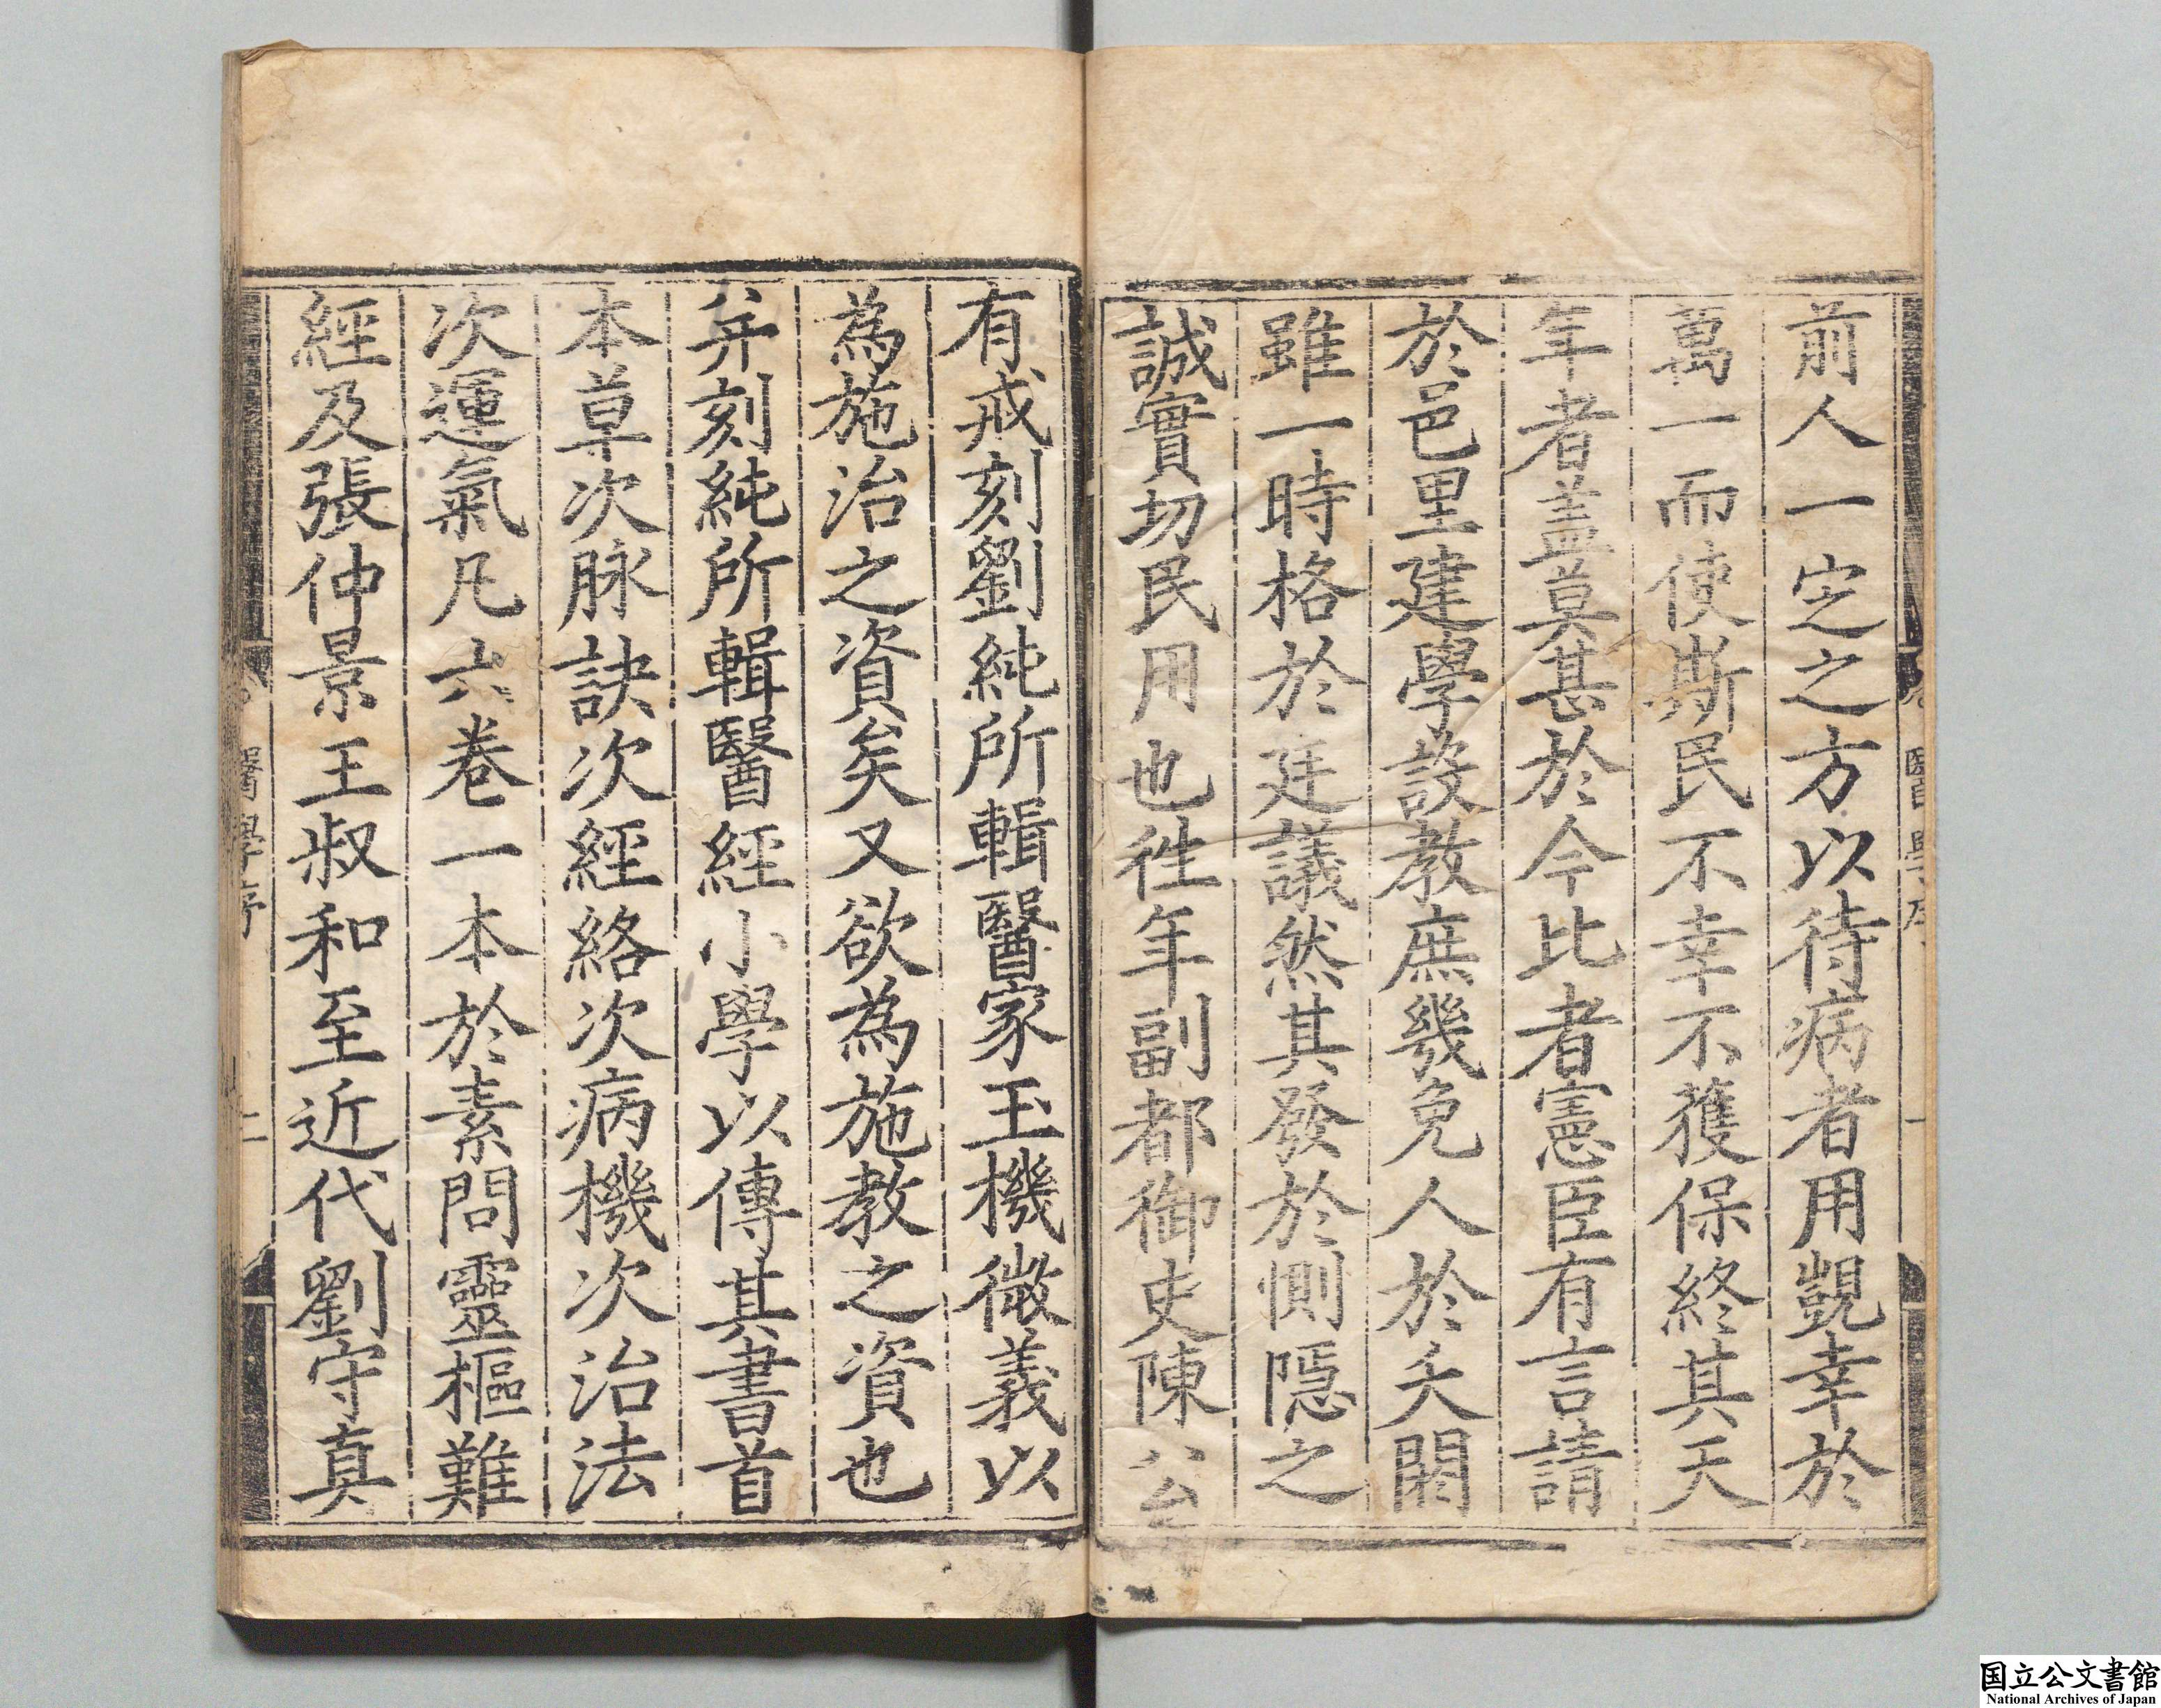 前人一定之方以待病者用覬幸於
萬一而使斯民不幸不獲保終其天
年者盖莫甚於今比者憲臣有言請
於邑里建學設教庶幾免人於夭閼
雖一時格於廷議然其發於惻隱之
誠實切民用也徃年副都御史陳公
有戒刻劉純所輯醫家玉機微義以
為施治之資矣又欲為施教之資也
并刻純所輯醫經小學以傳其書首
本草次脉訣次經絡次病機次治法
次運氣凡六巻一本於素問靈樞難
經及張仲景王叔和至近代劉守真
醫學序
二
国立公文書館
National Archives of Japan